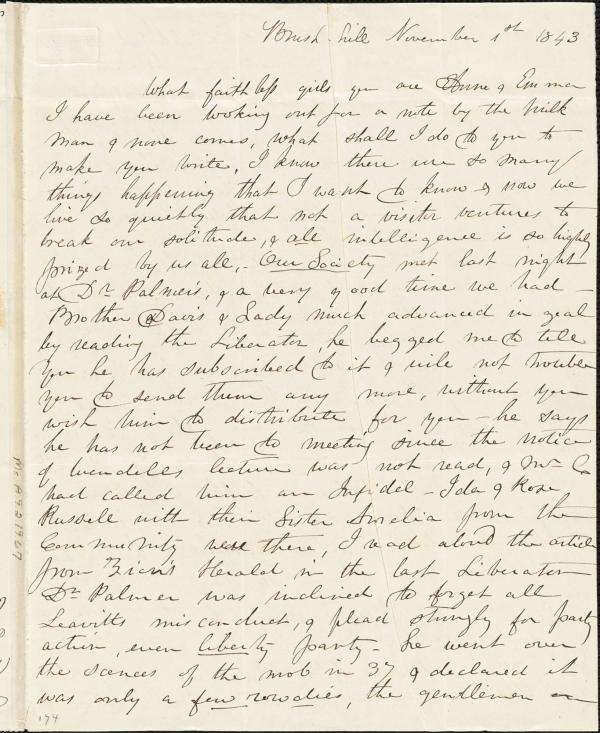 Brush-hill November 1st 1843
What faithless girls you are Anne & Emma
I have been looking out for a note by the milk
man & none comes, what shall I do to you to
make you write, I know there are so many
things happening that I want to know & now we
live so quietly that not a visitor ventures to
break our solitude, & all intelligence is so highly
prized by us all,- Our Society met last night
at Dr Palmer's, & a very good time we had -
Brother Davis & Lady much advanced in zeal
by reading the Liberator, he begged me to tell
you he has subscribed to it & will not trouble
you to send them any more, without you
wish him to distribute for you - he says
he has not been to meeting since the notice
of Wendells lecture was not read, & Mr Co
had called him an Infidel - Ida & Rose
Russell with their Sister Amelia from the
Community were there, I read aloud the article
from Zion's Herald in the last Liberator
Dr Palmer was inclined to forget all
Leavitts misconduct, & plead strongly for party
action, even liberty party - he went over
the scences of the mob in 37 & declared it
was only a few rowdies, the gentlemen on
174
Ms.A.9.2.19.67